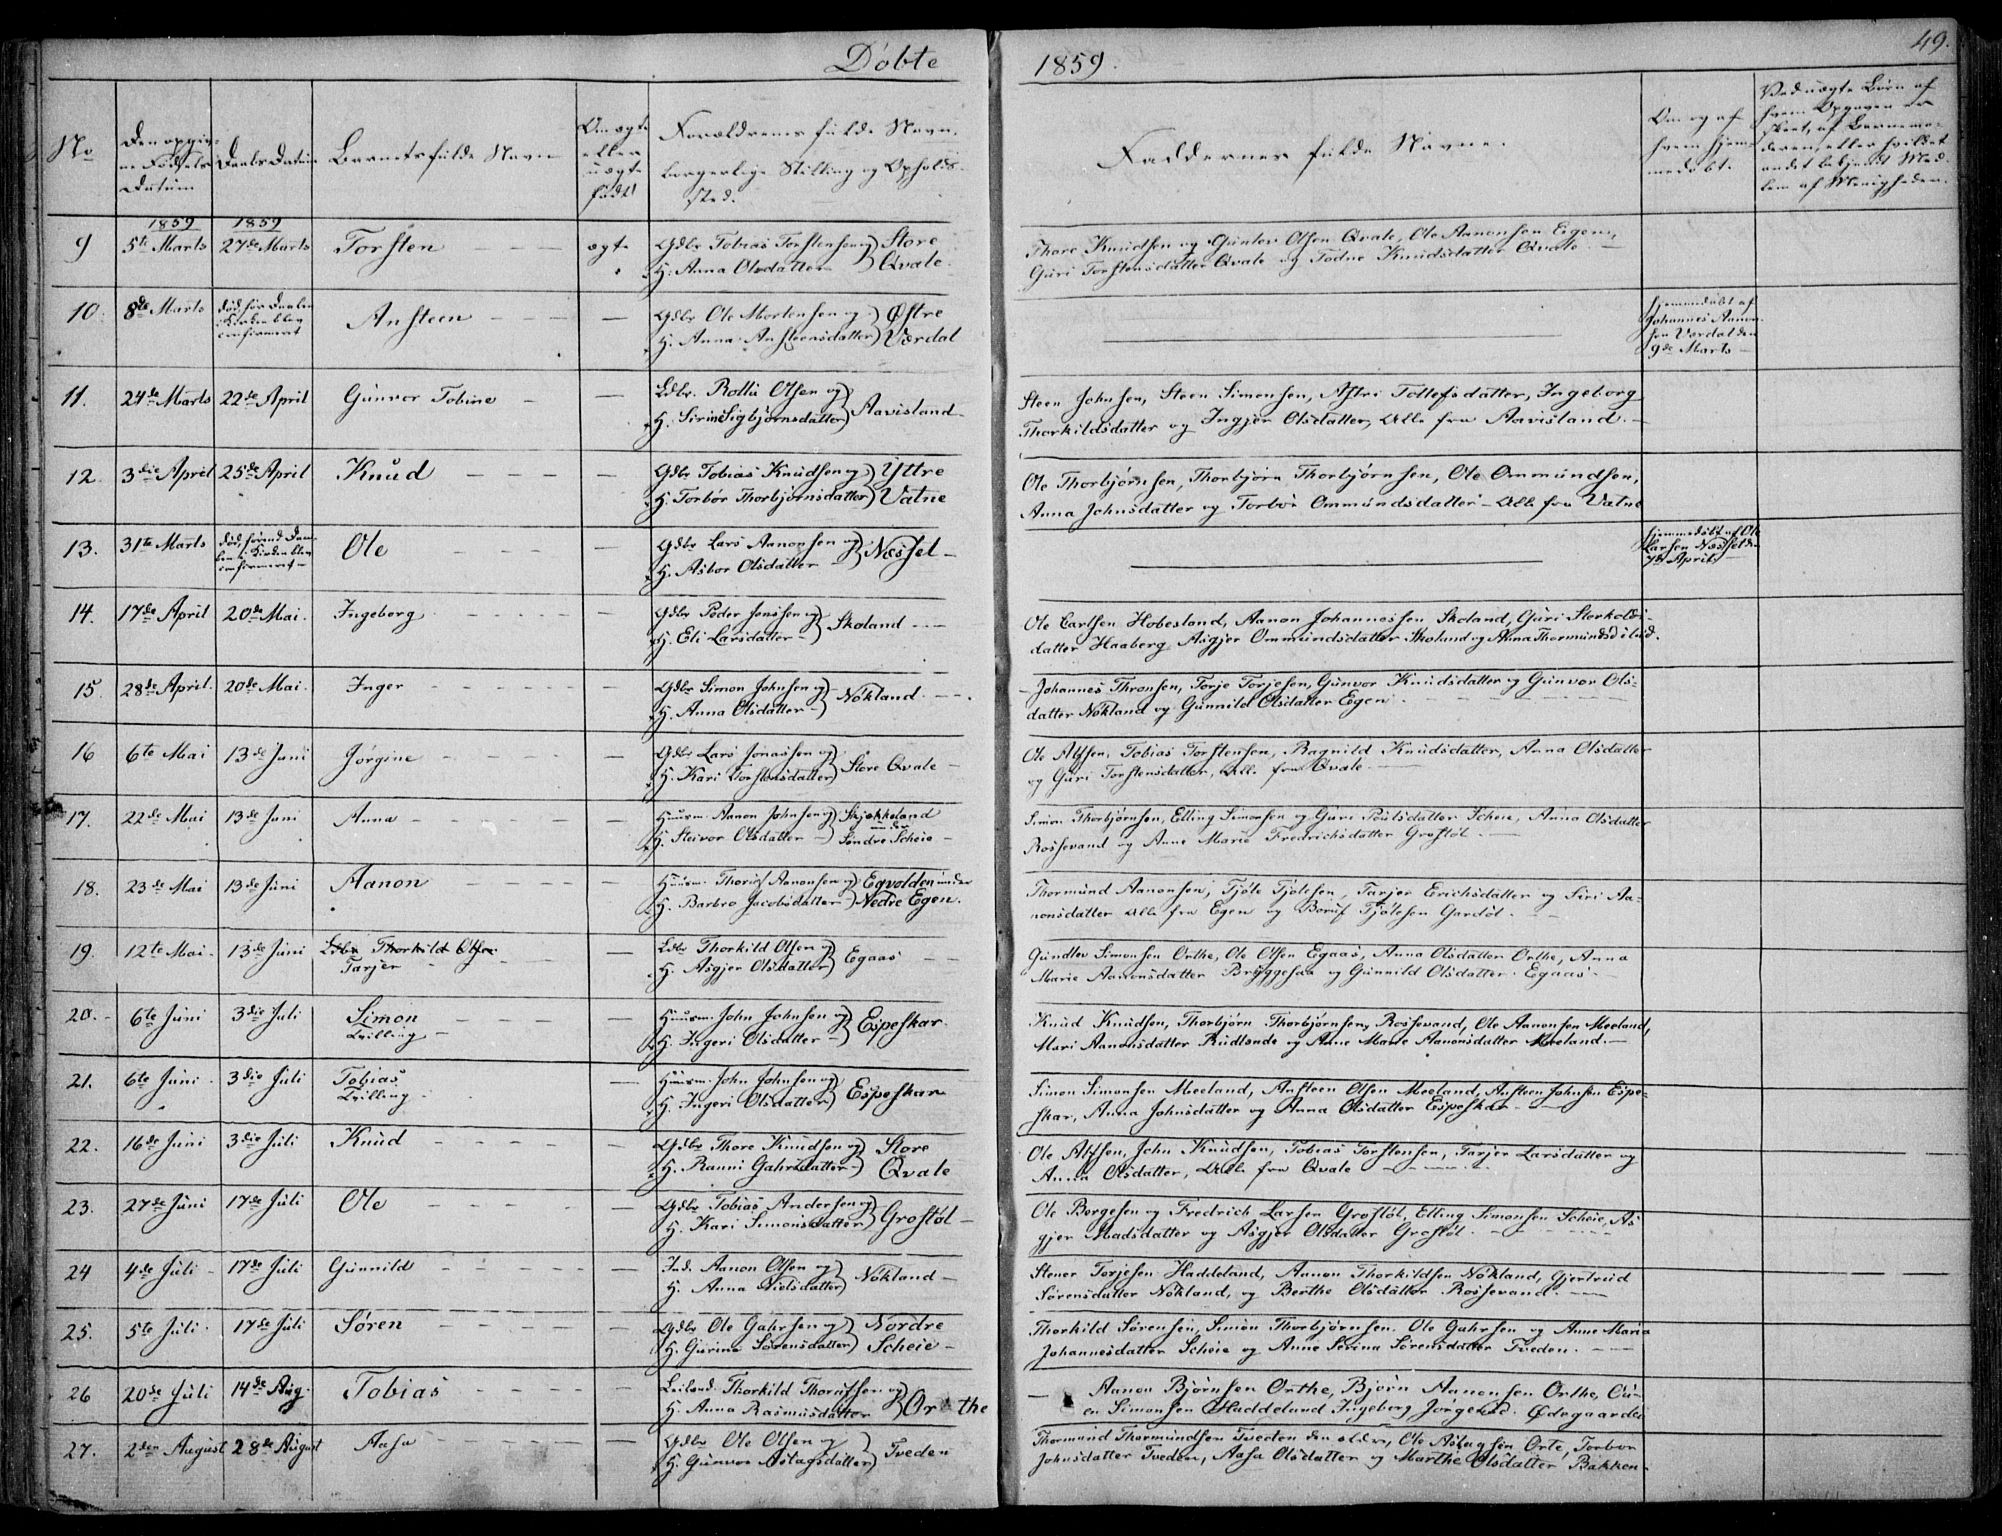 Døbte
1859.
49.
No
Den opgiv-
ne Fødsels
Datum
Daabs Datum
Barnets fulde Navn
Om ægte
eller
uægte
født
Forældrenes fulde Navn,
borgerlige Stilling og Opholds
sted.
Faddernes fulde Navne.
Om og af
hvem hjem-
medøbt.
Ved uægte Børn af
hvem Opgaven er
skeet, af Barnemo-
deren eller hvilket
andet bekjendt Med-
lem af Menigheden.
1859
1859
9
5te Marts
27de Marts
Torsten
ægte
Gdbr Tobias Torstensen og
H. Anna Olsdatter
Store
Qvale.
Thore Knudsen og Gunlov Olsen Qvale, Ole Aanonsen Eigen,
Guri Torstensdatter Qvale og Todne Knudsdatter Qvale.
10.
8de Marts
død før Daaben
i Kirken blev
confirmert
Ansteen
Gdbr Ole Mortensen og
H. Anna Ansteensdatter
Østre
Værdal
hjemmedøbt af
Johannes Aanon-
sen Værdal den
9de Marts
11.
24de Marts
22de April
Gunvor Tobine
Gdbr. Rolli Olsen og
H. Sirine Sigbjørnsdatter
Aavisland
Steen Johnsen, Steen Simonsen, Astri Tollefsdatter, Ingeborg
Thorkildsdatter og Ingjer Olsdatter, Alle fra Aavisland.
12.
3die April
25de April
Knud
Gdbr Tobias Knudsen og
H. Torbor Thorbjørnsdatter
Yttre
Vatne
Ole Thorbjørnsen, Thorbjørn Thorbjørnsen, Ole Ommundsen,
Anna Johnsdatter og Torbor Ommundsdatter - Alle fra Vatne
13.
31te Marts
død, forend Daa-
ben i Kirken blev
confirmeret
Ole
Gdbr Lars Aanonsen og
H. Asbor Olsdatter
Næsset
hjemmedøbt af Ole
Larsen Næsset den
7de April
14.
17de April
20de Mai.
Ingeborg
Gdbr Peder Jenssen og
H. Eli Larsdatter
Skoland
Ole Carlsen Hobesland, Aanon Johannessen Skoland, Guri Storkolds-
datter Haaberg Asgjer Ommundsdatter Skoland og Anna Thormundsd ibid.
15.
28de April.
20de Mai.
Inger
Gdbr Simon Johnsen og
H. Anna Olsdatter
Nökland.
Johannes Thronsen, Torje Torjesen, Gunvor Knudsdatter og Gunvor Ols-
datter Nökland og Gunnild Olsdatter Eigen.
16
6te Mai
13de Juni
Jørgine
Gdbr Lars Jonassen og
H. Kari Torstensdatter
Store Qvale
Ole Alfsen, Tobias Torstensen, Ragnild Knudsdatter, Anna Olsdatter
og Guri Torstensdatter, Alle fra Qvale.
17.
22de Mai
13de Juni
Anna
Huusm. Aanon Johnsen og
H. Steivor Olsdatter
Skjekkeland
under
Søndre Scheie
Simon Thorbjørnsen, Elling Simonsen og Guri Poulsdatter Scheie, Anna Olsdatter
Rossevand og Anne Marie Fredrichsdatter Grostöl.
18.
23de Mai
13de Juni
Aanon
Huusm. Thoruf Aanonsen og
H. Barbro Jacobsdatter
Egvolden under
Nedre Egen.
Thormund Aanonsen, Tjöle Tjölesen, Tarjer Erichsdatter og Siri Aa-
nonsdatter alle fra Egen og Boruf Tjölesen Gardöl.
19.
12te Mai.
13de Juni
Ldbr Thorkild Olsen
Tarjer
Ldbr Thorkild Olsen og
H. Asgjer Olsdatter
Egaas
Gundlev Simonsen Orthe, Ole Olsen Egaas, Anna Olsdatter Orthe, Anna
Marie Aanonsdatter Bryggesaa og Gunnild Olsdatter Egaas.
20.
6te Juni
3die Juli
Simon
Tvilling
Huusm. John Johnsen og
H. Ingeri Olsdatter
Espeskar.
Knud Knudsen, Thorbjørn Thorbjørnsen, Rossevand, Ole Aanonsen Meeland,
Mari Aanonsdatter Rudlende og Anne Marie Aanonsdatter Meeland.
21.
6te Juni
3die Juli
Tobias
Tvilling
Huusm. John Johnsen og
H. Ingeri Olsdatter
Espeskar
Simon Simonsen Meeland, Ansteen Olsen Meeland, Ansteen Johnsen Espe-
skar, Anna Johnsdatter og Anna Olsdatter Espeskar.
22.
16de Juni
3die Juli
Knud
Gdbr Thore Knudsen og
H. Ranni Gahrsdatter
Store
Qvale
Ole Alfsen, John Knudsen, Tobias Torstensen, Tarjer Larsdatter og
Anna Olsdatter, Alle fra Qvale
23.
27de Juni
17de Juli
Ole
Gdbr Tobias Andersen og
H. Kari Simonsdatter
Grostöl
Ole Borgesen og Fredrich Larsen Grostöl, Elling Simonsen Scheie, As
gjer Madsdatter og Asgjer Olsdatter Grostöl.
24
4de Juli
17de Juli
Gunnild
Ind. Aanon Olsen og
H. Anna Nielsdatter
Nökland
Stener Torjesen Haddeland, Aanon Thorkildsen Nökland, Gjertrud
Sörensdatter Nökland, og Berthe Olsdatter Rossevand.
25.
5te Juli.
17de Juli
Sören
Gdbr Ole Gahrsen og
H. Gurine Sörensdatter
Nordre
Scheie
Thorkild Sörensen, Simon Thorbjørnsen, Ole Gahrsen og Anne Maria
Johannesdatter Scheie og Anne Serina Sörensdatter Tveden.
26
20de Juli
14de Aug.
Tobias
Leilend. Thorkild Thorufsen og
H. Anna Rasmusdatter
Orthe
Aanon Bjørnsen Orthe, Bjørn Aanonsen Orthe, Ou-
en Simonsen Haddeland Ingeborg Jørgensd. Ødegaarden
27.
2den August
28de August
Aasa
Gdbr Ole Olsen og
H. Gunvor Aslagsdatter
Tveden
Thormund Thormundsen Tveden den eldre, Ole Aslagsen Orte, Torbor
Johnsdatter Tveden, Aasa Olsdatter og Marthe Olsdatter Bakken.